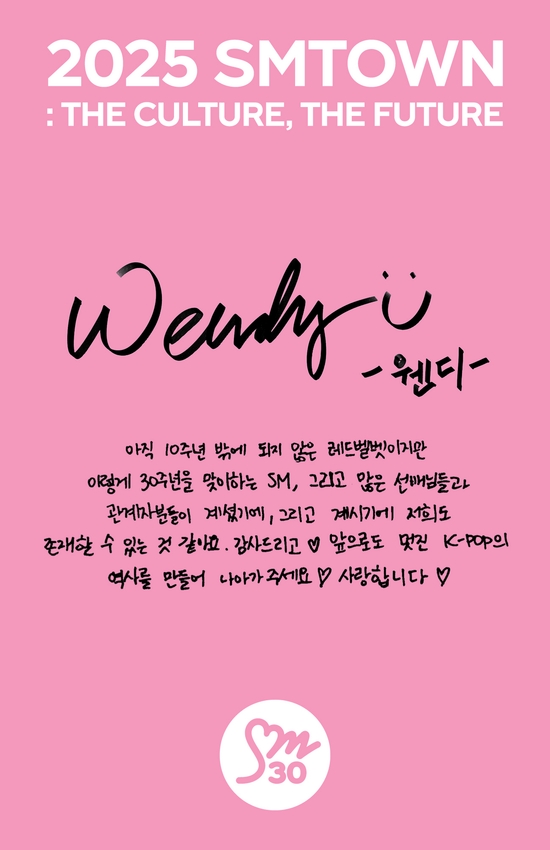 2025 SMTOWN
: THE CULTURE, THE FUTURE
Wendy
-웬디-
아직 10주년 밖에 되지 않은 레드벨벳이지만
이렇게 30주년을 맞이하는 SM, 그리고 많은 선배님들과
관계자분들이 계셨기에, 그리고 계시기에 저희도
존재할 수 있는 것 같아요. 감사드리고 ♡ 앞으로도 멋진 K-POP의
역사를 만들어 나아가주세요 ♡ 사랑합니다 ♡
Sm
30